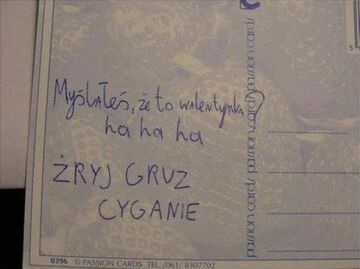 Myślałeś, że to walentynka?
ha ha ha
ŻRYJ GRUZ
CYGANIE
passion cards passion cards passion cards
0396 © PASSION CARDS TEL. /061/ 8407702